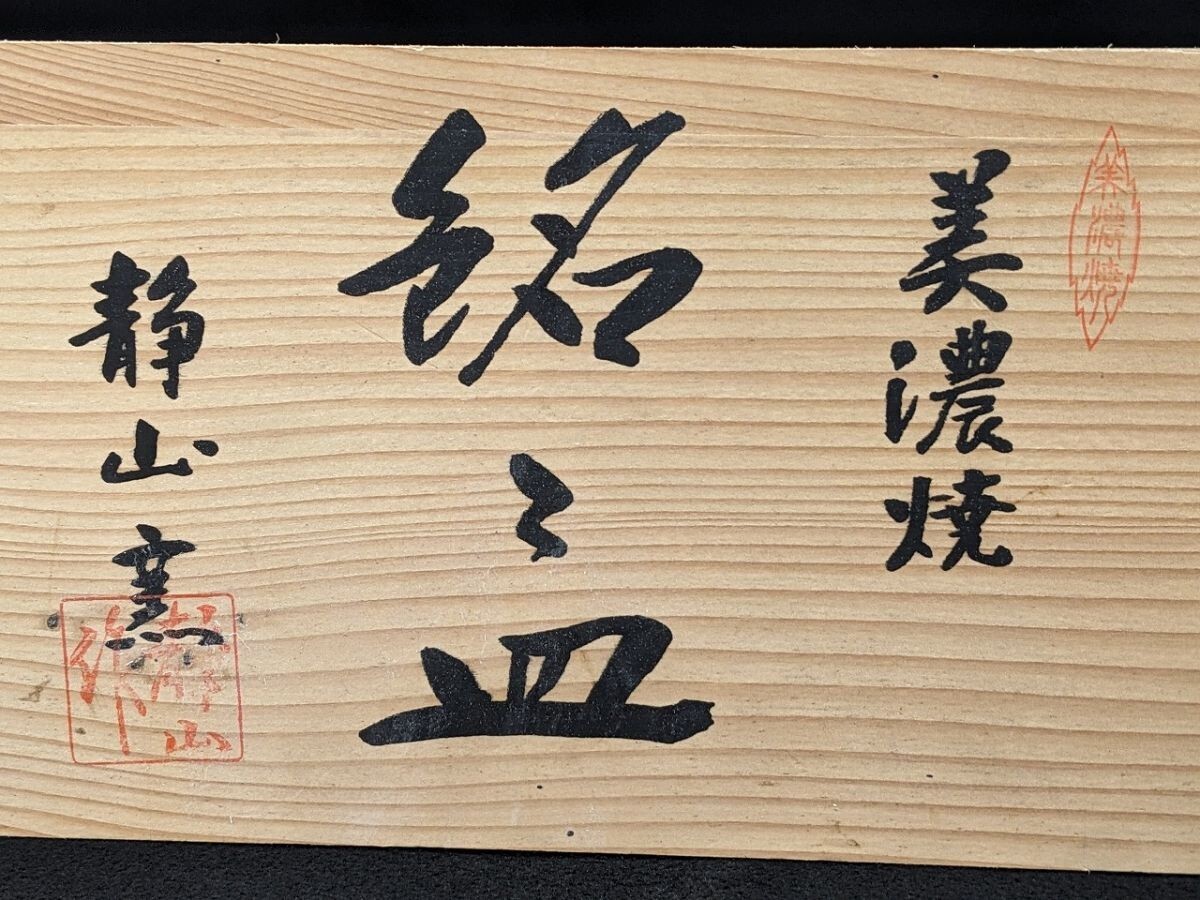 美濃焼
美濃焼
銘々皿
静山窯
静山作